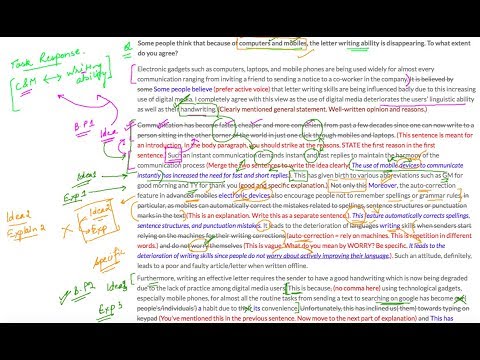 Task Response.
C&M ↔ writing ability
B.P1 Idea
Idea1
Exp 1
Idea 2
Explain 2
Idea2
Exp
Specific
B.P2 Idea3
Exp 3
Q Some people think that because of computers and mobiles, the letter writing ability is disappearing. To what extent
do you agree?
Electronic gadgets such as computers, laptops, and mobile phones are being used widely for almost every
communication ranging from inviting a friend to sending a notice to a co-worker in the company. It is believed by
some Some people believe (prefer active voice) that letter writing skills are being influenced badly due to this increasing
use of digital media. I completely agree with this view as the use of digital media deteriorates the users' linguistic ability
as well as their handwriting. (Clearly mentioned general statement. Well-written opinion and reasons.)
Communication has become faster, cheaper and more convenient from past a few decades since one can now write to a
person sitting in the other corner of the world in just one click through mobiles and laptops. (This sentence is meant for
an introduction. In the body paragraph, you should strike at the reasons. STATE the reason in the first
sentence.) Such an instant communication demands instant and fast replies to maintain the harmony of the
communication process (Merge the two sentences to write the main idea). The use of mobile devices to communicate
instantly has increased the need for fast and short replies. This has given birth to various abbreviations such as GM for
good morning and TY for thank you (good and specific explanation). Not only this Moreover, the auto-correction
feature in advanced mobiles electronic devices also encourage people not to remember spellings or grammar rules, in
particular, as mobiles can automatically correct the mistakes related to spellings, sentence structures or punctuation
marks in the text (This is an explanation. Write this as a separate sentence). This feature automatically corrects spellings,
sentence structures, and punctuation mistakes. It leads to the deterioration of languages writing skills when senders start
relying on the machines for their writing corrections (auto-correction = rely on machines. This is repetition in different
words) and do not worry themselves (This is vague. What do you mean by WORRY? Be specific. It leads to the
deterioration of writing skills since people do not worry about actively improving their language). Such an attitude, definitely,
leads to a poor and faulty article/letter when written offline.
Furthermore, writing an effective letter requires the sender to have a good handwriting which is now being degraded
due to the lack of practice among digital media users. This is because, (no comma here) using technological gadgets,
especially mobile phones, for almost all the routine tasks from sending a text to searching on google has become
people's/individuals') a habit due to its convenience. Unfortunately, this has inclined us( them) towards typing on
keypad (You've mentioned this in the previous sentence. Now move to the next part of explanation) and This has